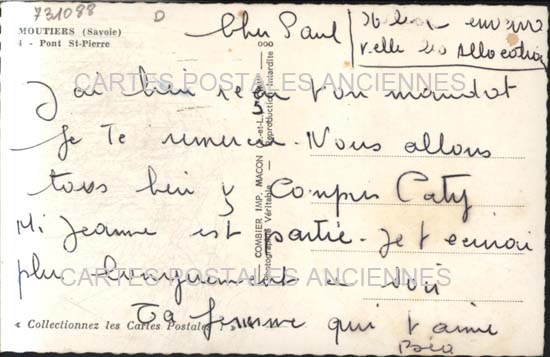 731088
D
MOUTIERS (Savoie)
4 - Pont St-Pierre
Cher Paul
velle les allocation
CARTES POSTALES ANCIENNES
J'ai bien reçu ton mandat
Je te remercie. Nous allons
tous bien y Compris Caty
Mi Jeanne est partie. Je t'ecrirai
plus longuement ce soir
CARTES POSTALES ANCIENNES
Ta femme qui t'aime
« Collectionnez les Cartes Postales
COMBIER IMP. MACON
Photographie Véritable - Reproduction Interdite